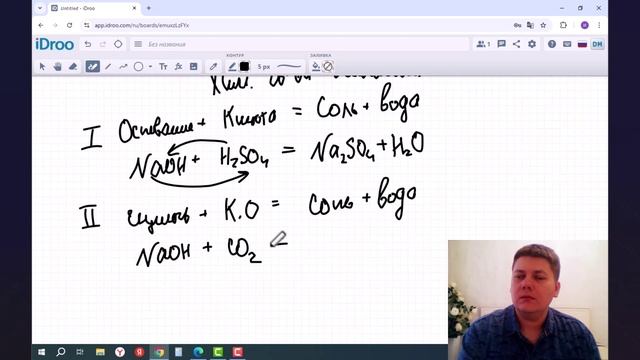 Untitled - iDroo
app.idroo.com/ru/boards/emuxzLzFYx
iDroo Без названия 1 DM
КОНТУР ЗАЛИВКА
5 px
Хим.
I Основание + Кислота = Соль + вода
NaOH + H2SO4 = Na2SO4 + H2O
II щелочь + К.О = соль + вода
NaOH + CO2